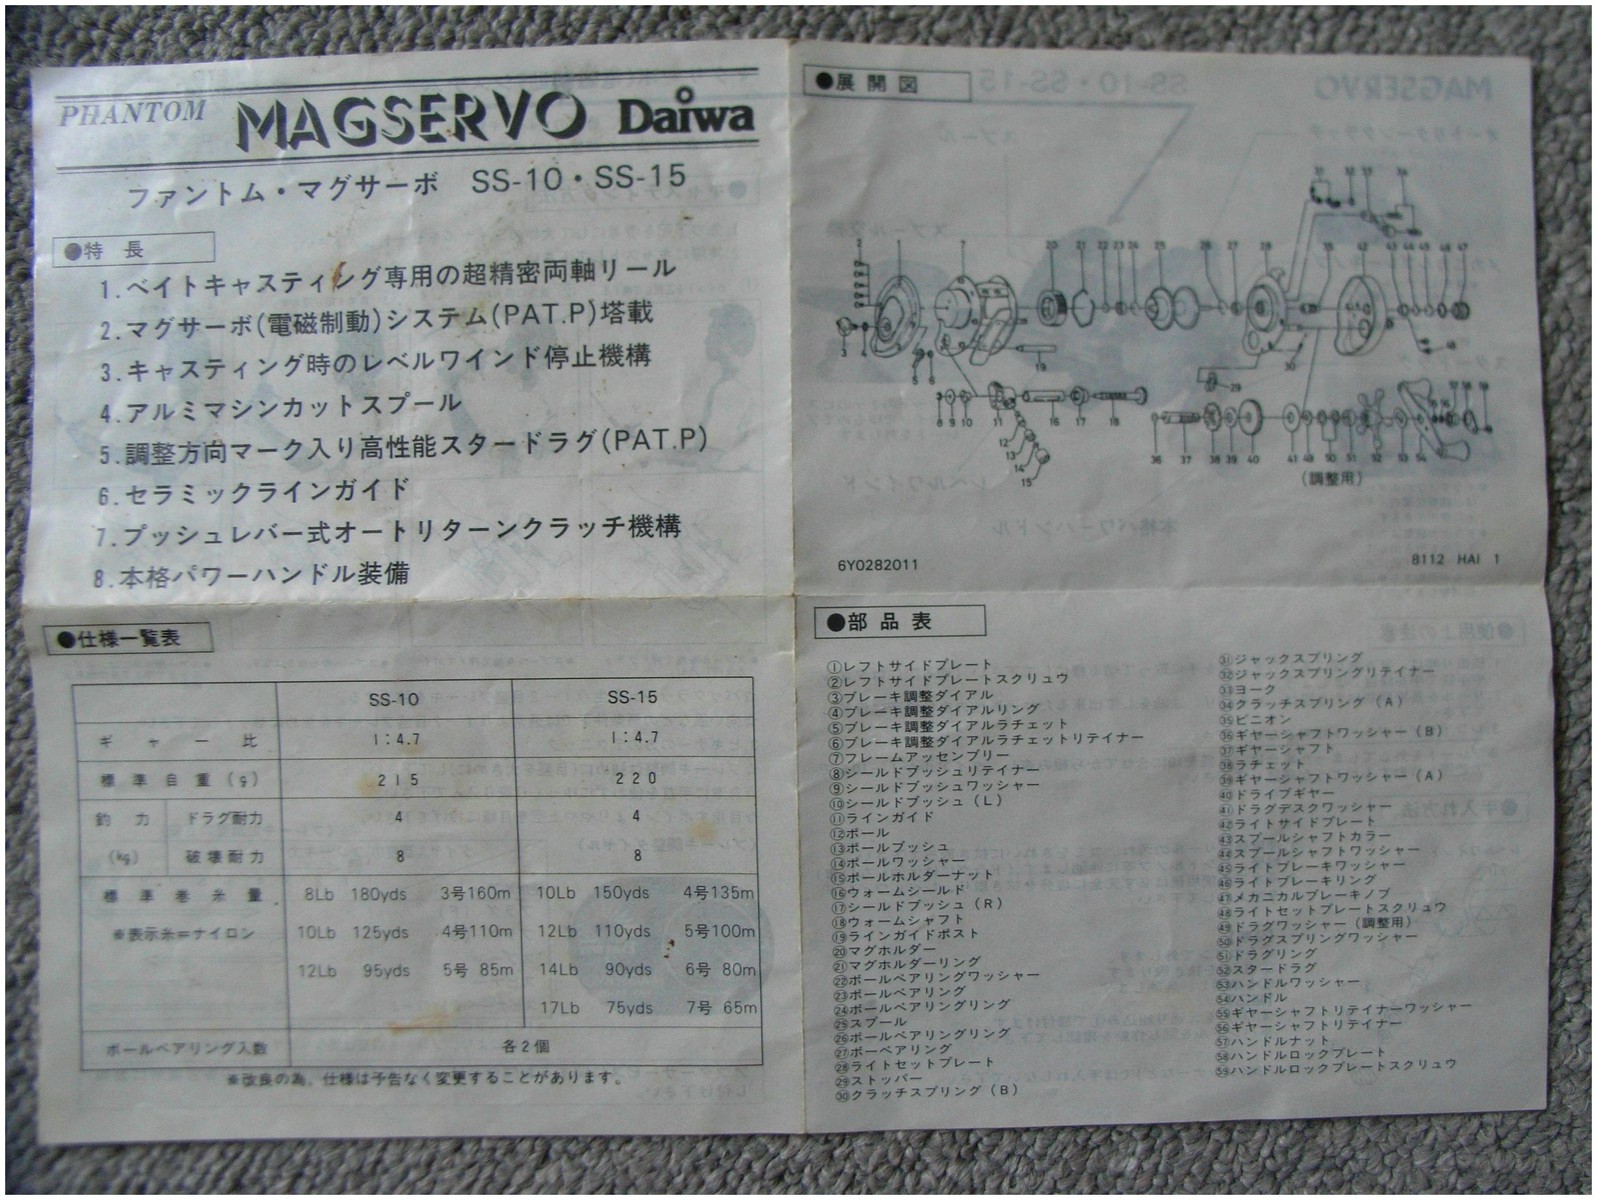 PHANTOM MAGSERVO Daiwa
ファントム・マグサーボ SS-10・SS-15
●特長
1.ベイトキャスティング専用の超精密両軸リール
2.マグサーボ(電磁制動)システム(PAT.P)塔載
3.キャスティング時のレベルワインド停止機構
4.アルミマシンカットスプール
5.調整方向マーク入り高性能スタードラグ(PAT.P)
6.セラミックラインガイド
7.プッシュレバー式オートリターンクラッチ機構
8.本格パワーハンドル装備
●仕様一覧表
SS-10 SS-15
ギャー比 1:4.7 1:4.7
標準自重(g) 215 220
釣力 ドラグ耐力 4 4
(kg) 破壊耐力 8 8
標準巻糸量 8Lb 180yds 3号160m 10Lb 150yds 4号135m
※表示糸=ナイロン 10Lb 125yds 4号110m 12Lb 110yds 5号100m
12Lb 95yds 5号 85m 14Lb 90yds 6号 80m
17Lb 75yds 7号 65m
ボールベアリング入数 各2個
※改良の為、仕様は予告なく変更することがあります。
●展開図
(調整用)
6Y0282011
8112 HAI 1
●部品表
①レフトサイドプレート
②レフトサイドプレートスクリュウ
③ブレーキ調整ダイアル
④ブレーキ調整ダイアルリング
⑤ブレーキ調整ダイアルラチェット
⑥ブレーキ調整ダイアルラチェットリテイナー
⑦フレームアッセンブリー
⑧シールドブッシュリテイナー
⑨シールドブッシュワッシャー
⑩シールドブッシュ(L)
⑪ラインガイド
⑫ポール
⑬ポールブッシュ
⑭ポールワッシャー
⑮ポールホルダーナット
⑯ウォームシールド
⑰シールドブッシュ(R)
⑱ウォームシャフト
⑲ラインガイドポスト
⑳マグホルダー
㉑マグホルダーリング
㉒ボールベアリングワッシャー
㉓ボールベアリング
㉔ボールベアリングリング
㉕スプール
㉖ボールベアリングリング
㉗ボーベアリング
㉘ライトセットプレート
㉙ストッパー
㉚クラッチスプリング(B)
㉛ジャックスプリング
㉜ジャックスプリングリテイナー
㉝ヨーク
㉞クラッチスプリング(A)
㉟ピニオン
㊱ギヤーシャフトワッシャー(B)
㊲ギヤーシャフト
㊳ラチェット
㊴ギヤーシャフトワッシャー(A)
㊵ドライブギヤー
㊶ドラグデスクワッシャー
㊷ライトサイドプレート
㊸スプールシャフトカラー
㊹スプールシャフトワッシャー
㊺ライトブレーキワッシャー
㊻ライトブレーキリング
㊼メカニカルブレーキノブ
㊽ライトセットプレートスクリュウ
㊾ドラグワッシャー(調整用)
㊿ドラグスプリングワッシャー
51ドラグリング
52スタードラグ
53ハンドルワッシャー
54ハンドル
55ギヤーシャフトリテイナーワッシャー
56ギヤーシャフトリテイナー
57ハンドルナット
58ハンドルロックプレート
59ハンドルロックプレートスクリュウ